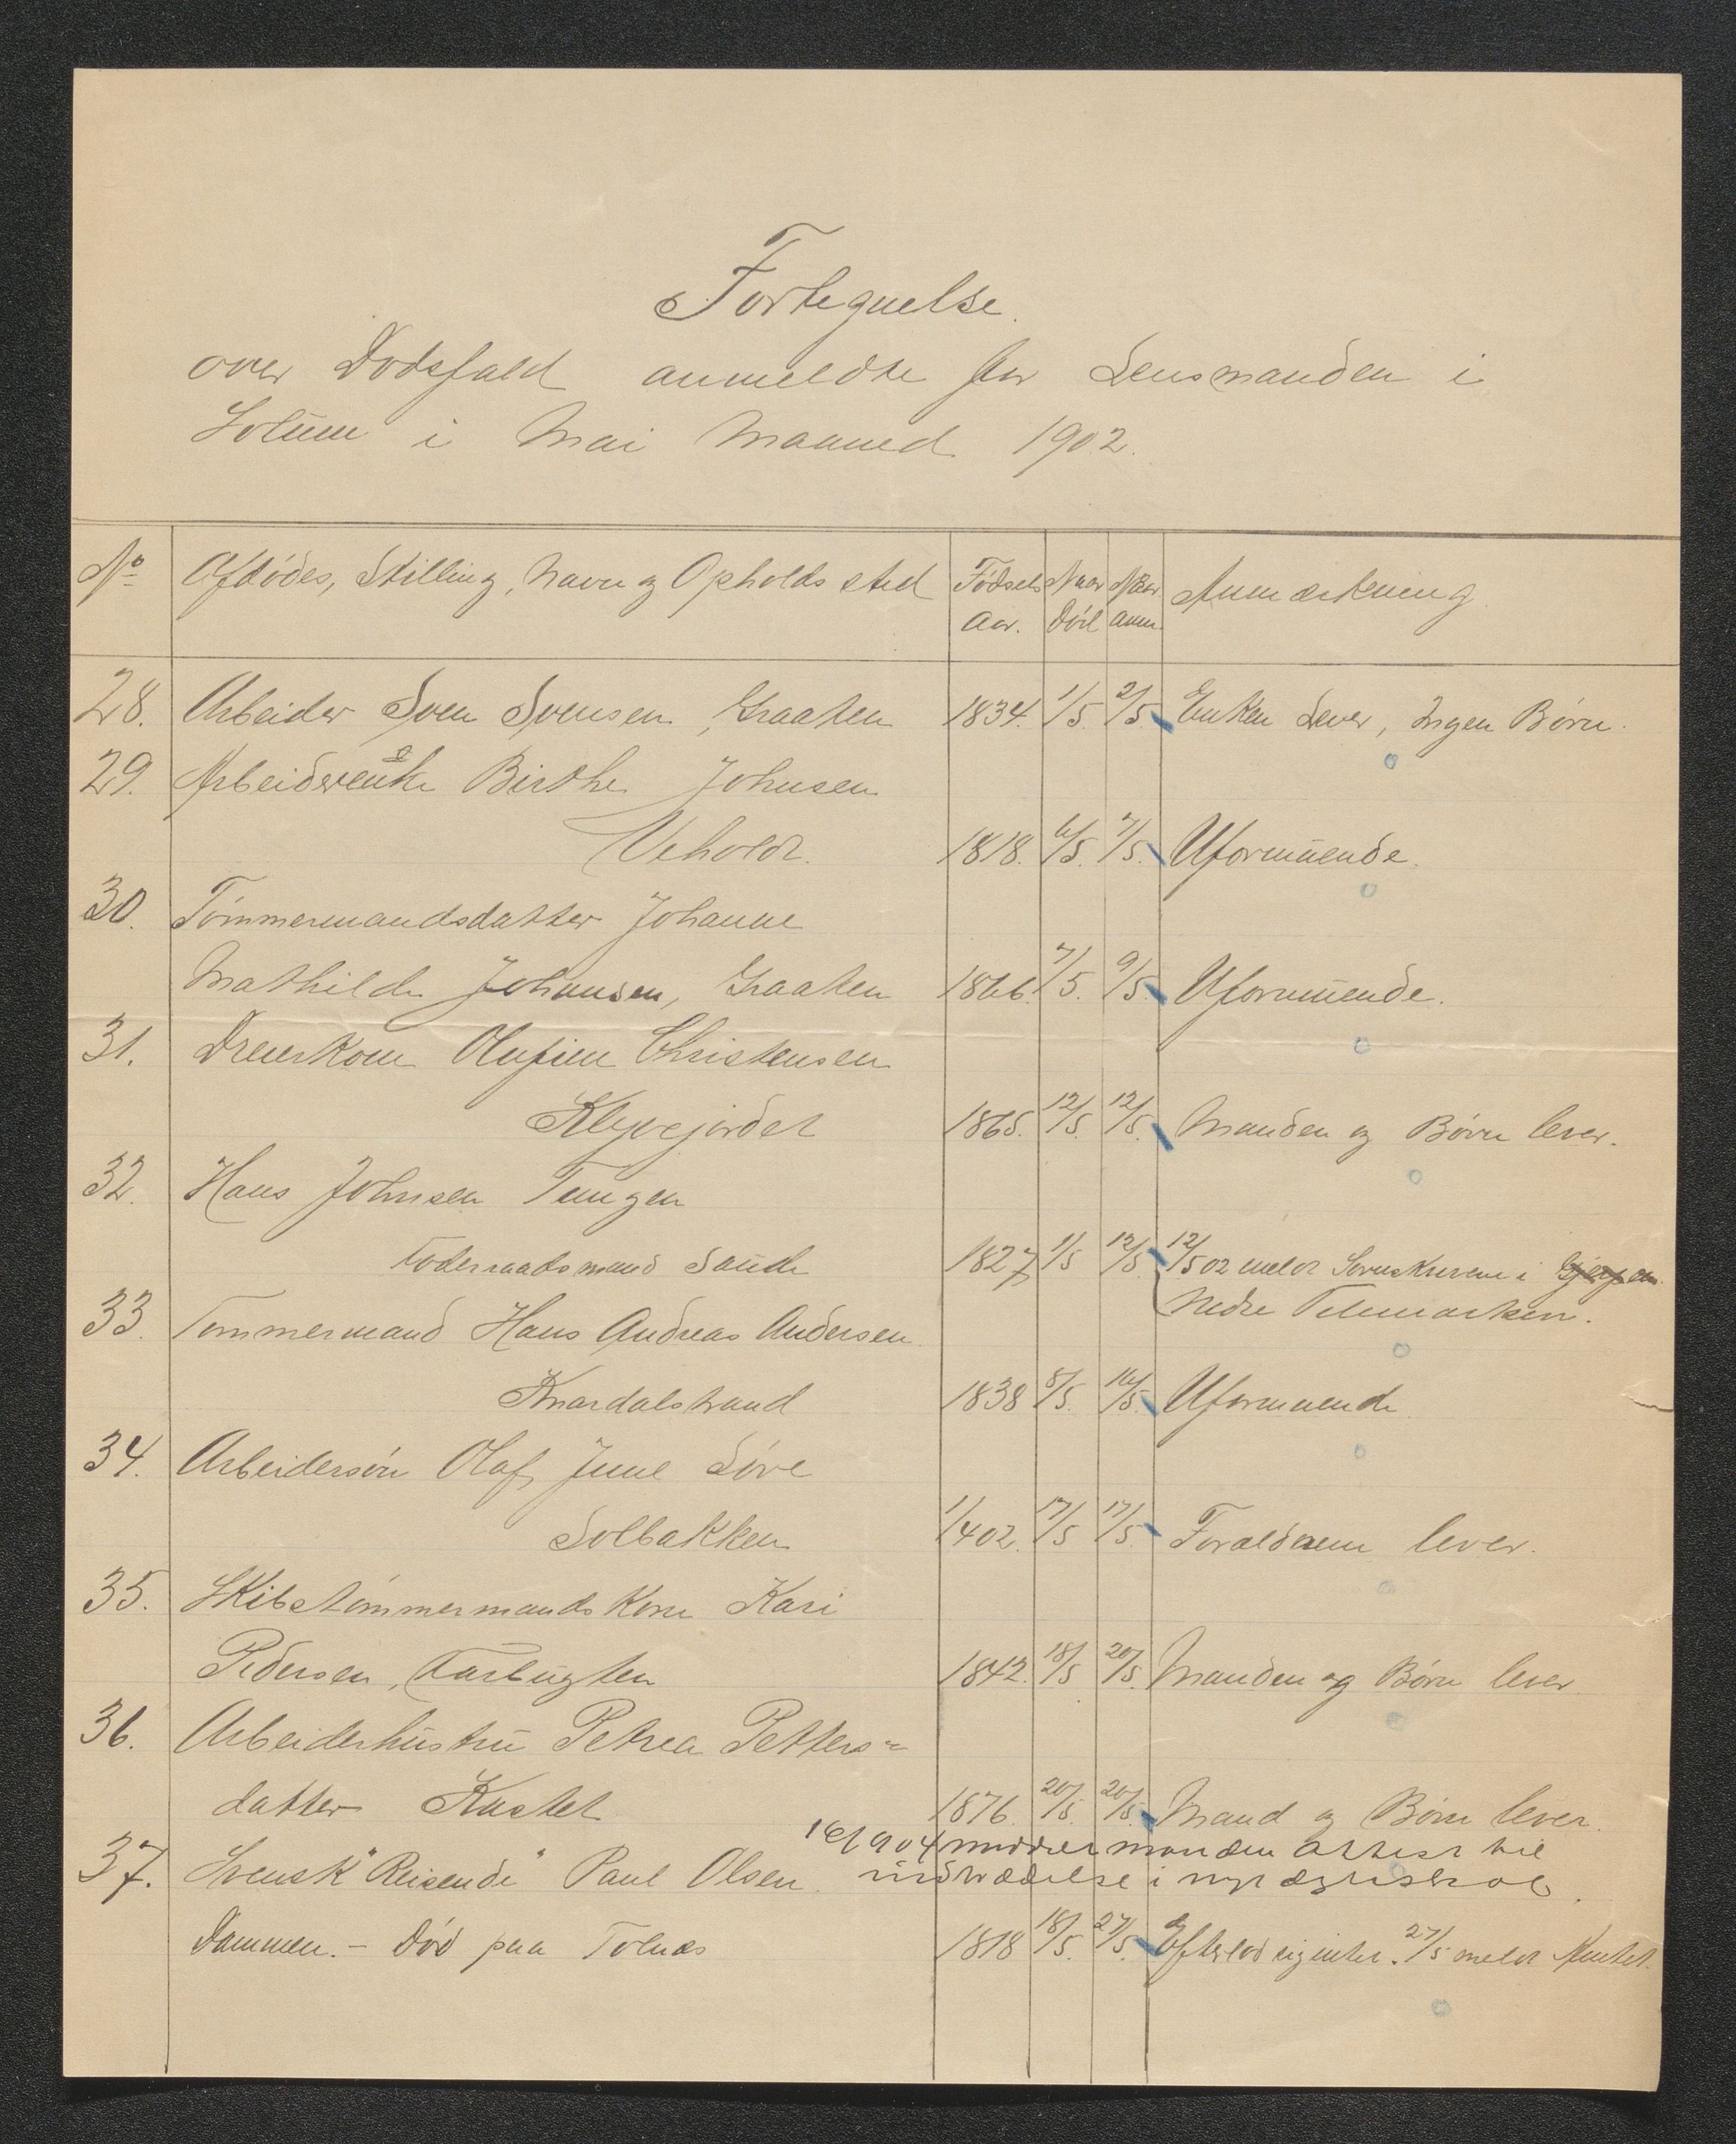 Fortegnelse.
over Dødsfald anmeldte for Lensmanden i
Solum i Mai Maaned 1902.
No Afdødes, Stilling, Navn og Opholdssted Fødsels Aar. Naar Død Naar anm. Anmærkning
28. Arbeider Sven Svensen, Graaten 1834. 1/5. 2/5. Enken Lever, Ingen Børn.
29. Arbeiderenke Birthe Johnsen
Vehold 1818. 6/5. 7/5. Uformuende.
30. Tømmermandsdatter Johanne
Mathilde Johansen, Graaten 1866. 7/5. 9/5. Uformuende.
31. Dreierkone Olufine Christensen
Klyvejordet 1865. 12/5. 12/5. Manden og Børn lever.
32. Hans Johnsen Tungen
Foderraadsmand Saude 1827 1/5 12/5. 12/5 02 meldt Sorenskriveren i Gjerpen
Nedre Telemarken.
33. Tømmermand Hans Andreas Andersen
Knardalstrand 1838 8/5. 16/5. Uformuende
34. Arbeidersøn Olaf Juul Løve
Solbakken 1/4 02. 17/5 17/5. Forældrene lever.
35. Skibstømmermandskone Kari
Pedersen, Tarbugten 1842. 18/5 20/5. Manden og Børn lever
36. Arbeiderhustru Petrea Petters-
datter Kastet 1876. 20/5. 20/5. Mand og Børn lever.
manden Attest til
37. Svensk "Reisende" Paul Olsen indtrædelse i nyt ægteskab.
Dammen. - Død paa Tolnæs 1818 18/5. 27/5. Efterlod sig intet. 27/5 meldt Amtet.